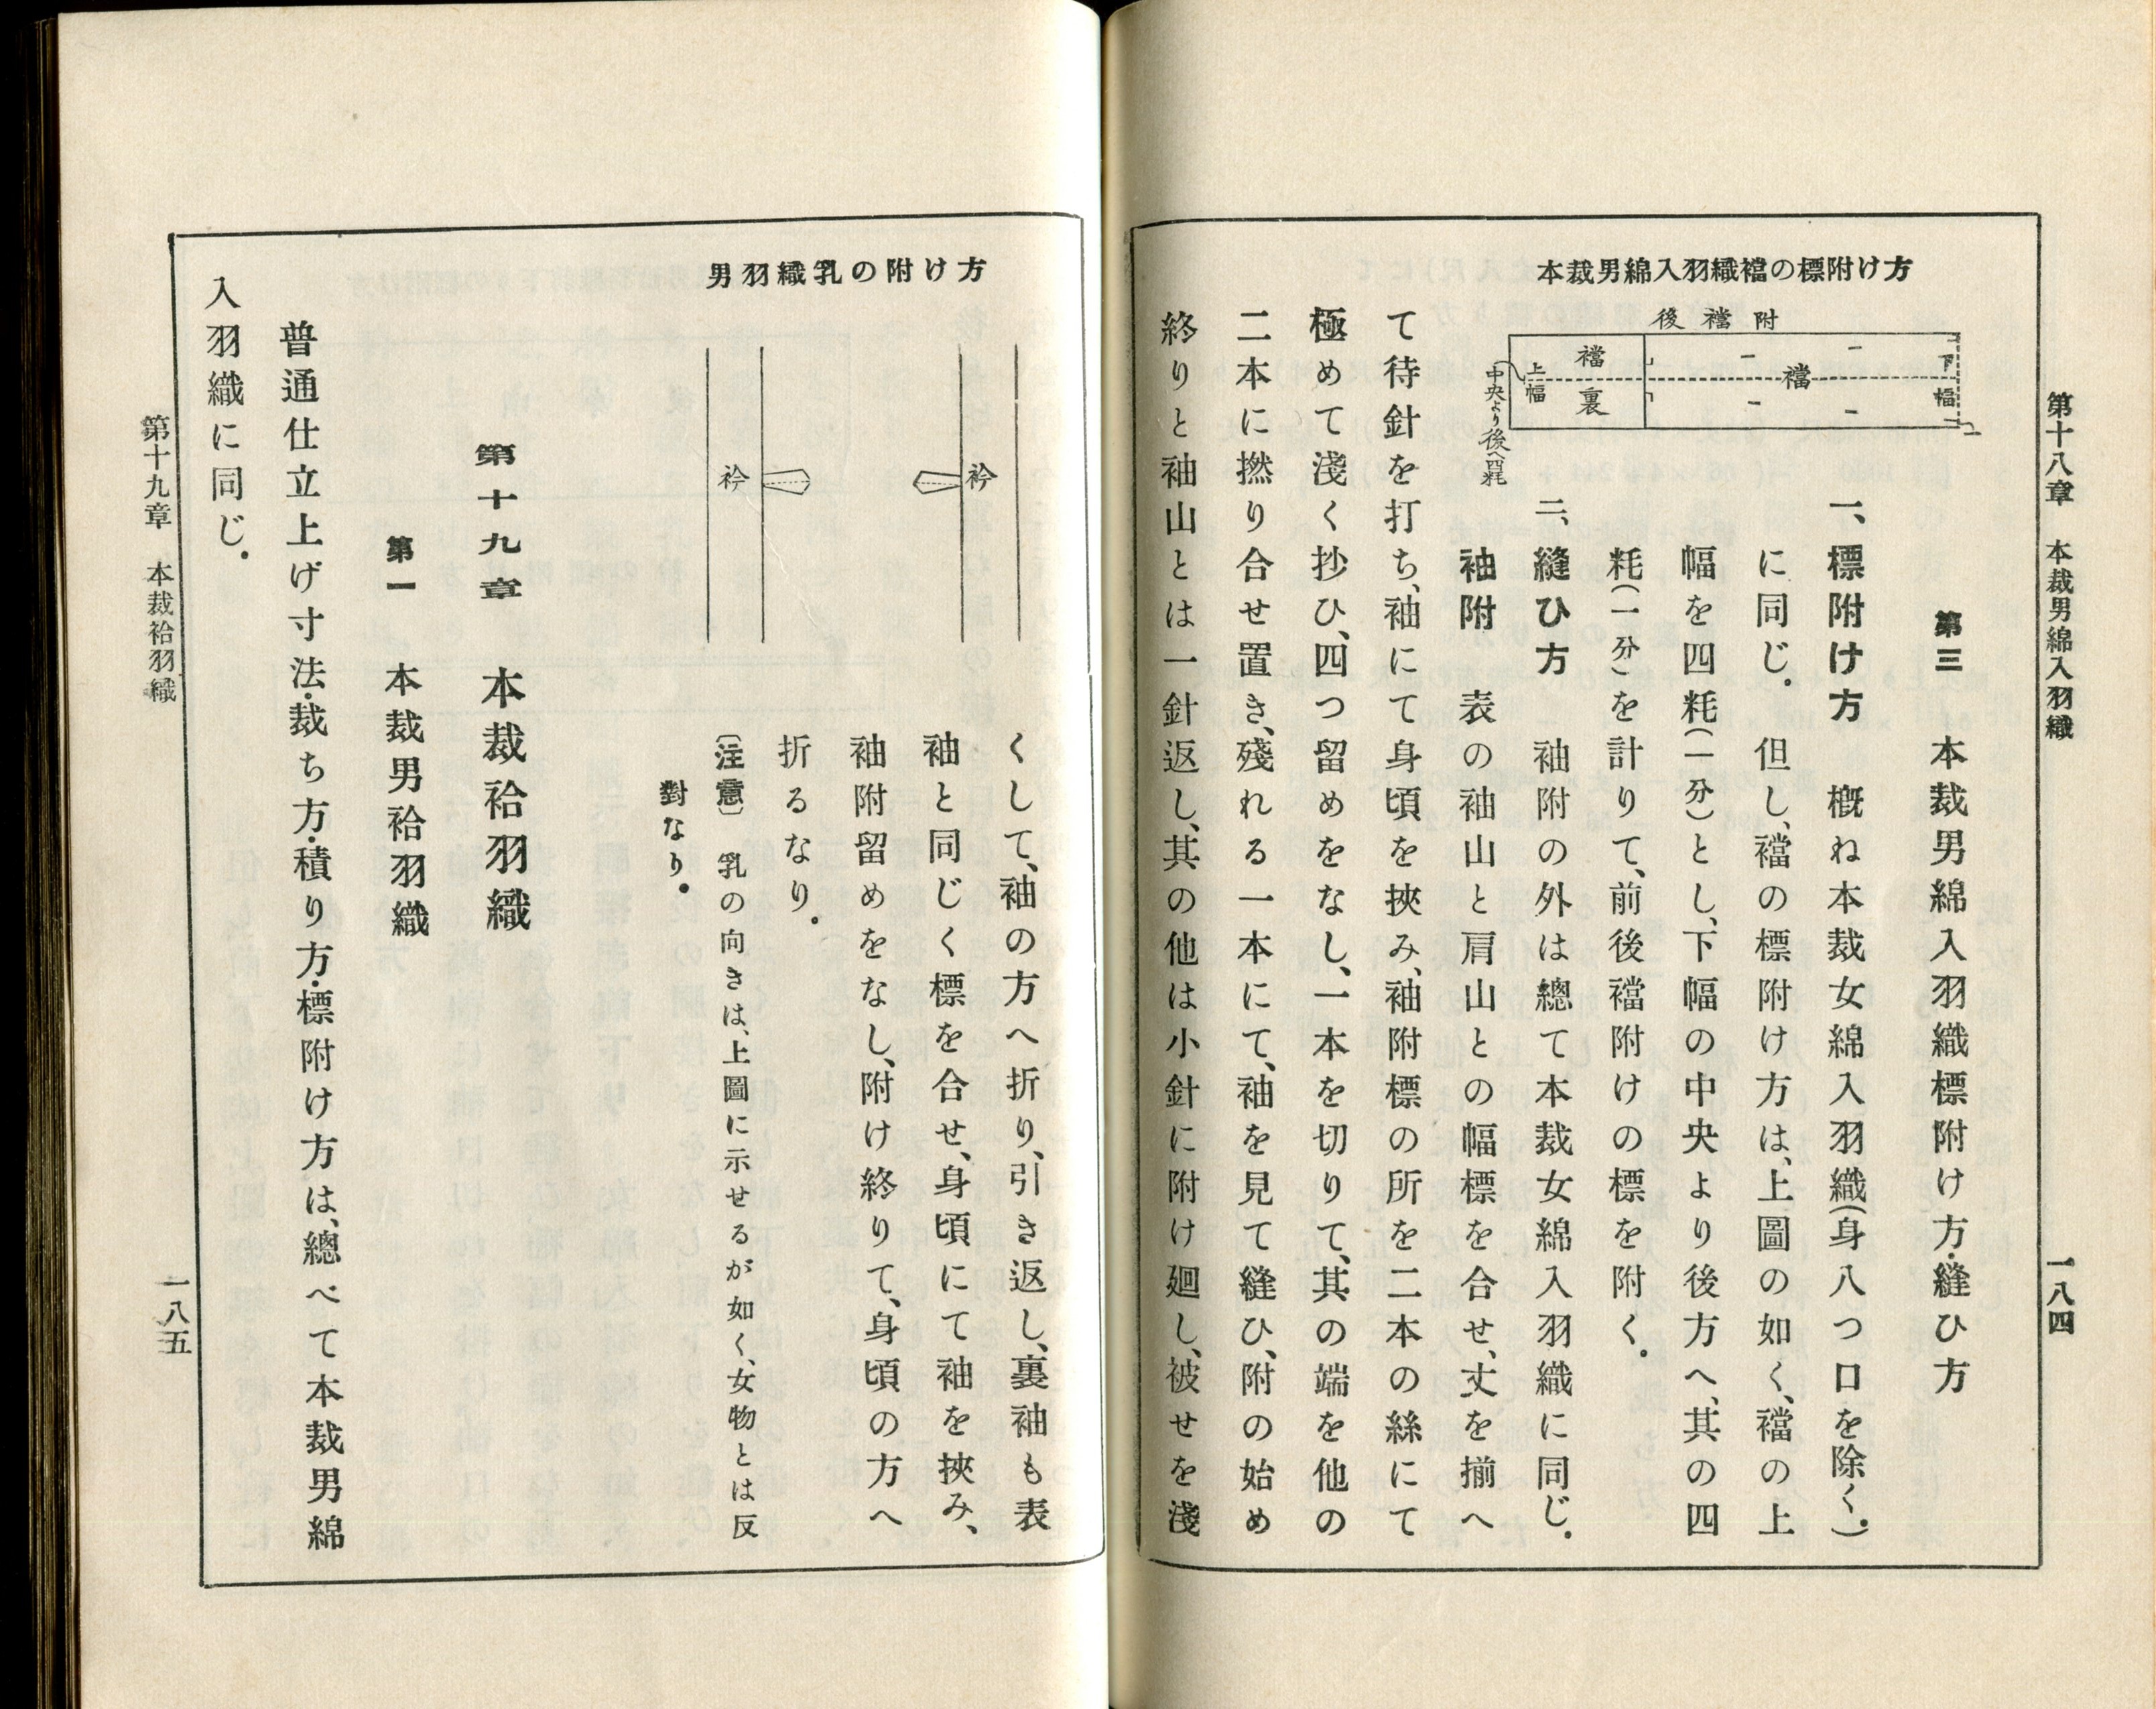 第十八章　本裁男綿入羽織
一八四
第三　本裁男綿入羽織標附け方・縫ひ方
本裁男綿入羽織襠の標附け方
後襠附
襠
襠裏
上幅
下幅
中央より後へ四耗
一、標附け方　概ね本裁女綿入羽織(身八つ口を除く。)
に同じ。但し、襠の標附け方は、上圖の如く、襠の上
幅を四耗(一分)とし、下幅の中央より後方へ、其の四
耗(一分)を計りて、前後襠附けの標を附く。
二、縫ひ方　袖附の外は總て本裁女綿入羽織に同じ。
袖附　表の袖山と肩山との幅標を合せ、丈を揃へ
て待針を打ち、袖にて身頃を挾み、袖附標の所を二本の絲にて
極めて淺く抄ひ、四つ留めをなし、一本を切りて、其の端を他の
二本に撚り合せ置き、殘れる一本にて、袖を見て縫ひ、附の始め
終りと袖山とは一針返し、其の他は小針に附け廻し、被せを淺
男羽織乳の附け方
衿
衿
くして、袖の方へ折り、引き返し、裏袖も表
袖と同じく標を合せ、身頃にて袖を挾み、
袖附留めをなし、附け終りて、身頃の方へ
折るなり。
〔注意〕　乳の向きは、上圖に示せるが如く、女物とは反
對なり。
第十九章　本裁袷羽織
第一　本裁男袷羽織
普通仕立上げ寸法・裁ち方・積り方・標附け方は、總べて本裁男綿
入羽織に同じ。
第十九章　本裁袷羽織
一八五